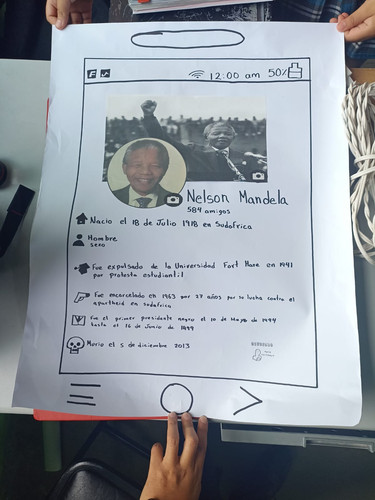 12:00 am 50%
Nelson Mandela
584 amigos
Nacio el 18 de Julio 1918 en Sudafrica
Hombre
sexo
Fue expulsado de la Universidad Fort Hare en 1941
por protesta estudiantil
Fue encarcelado en 1963 por 27 años por su lucha contra el
apartheid en sudafrica
Fue el primer presidente negro el 10 de Mayo de 1994
hasta el 16 de Junio de 1999
Murio el 5 de diciembre 2013